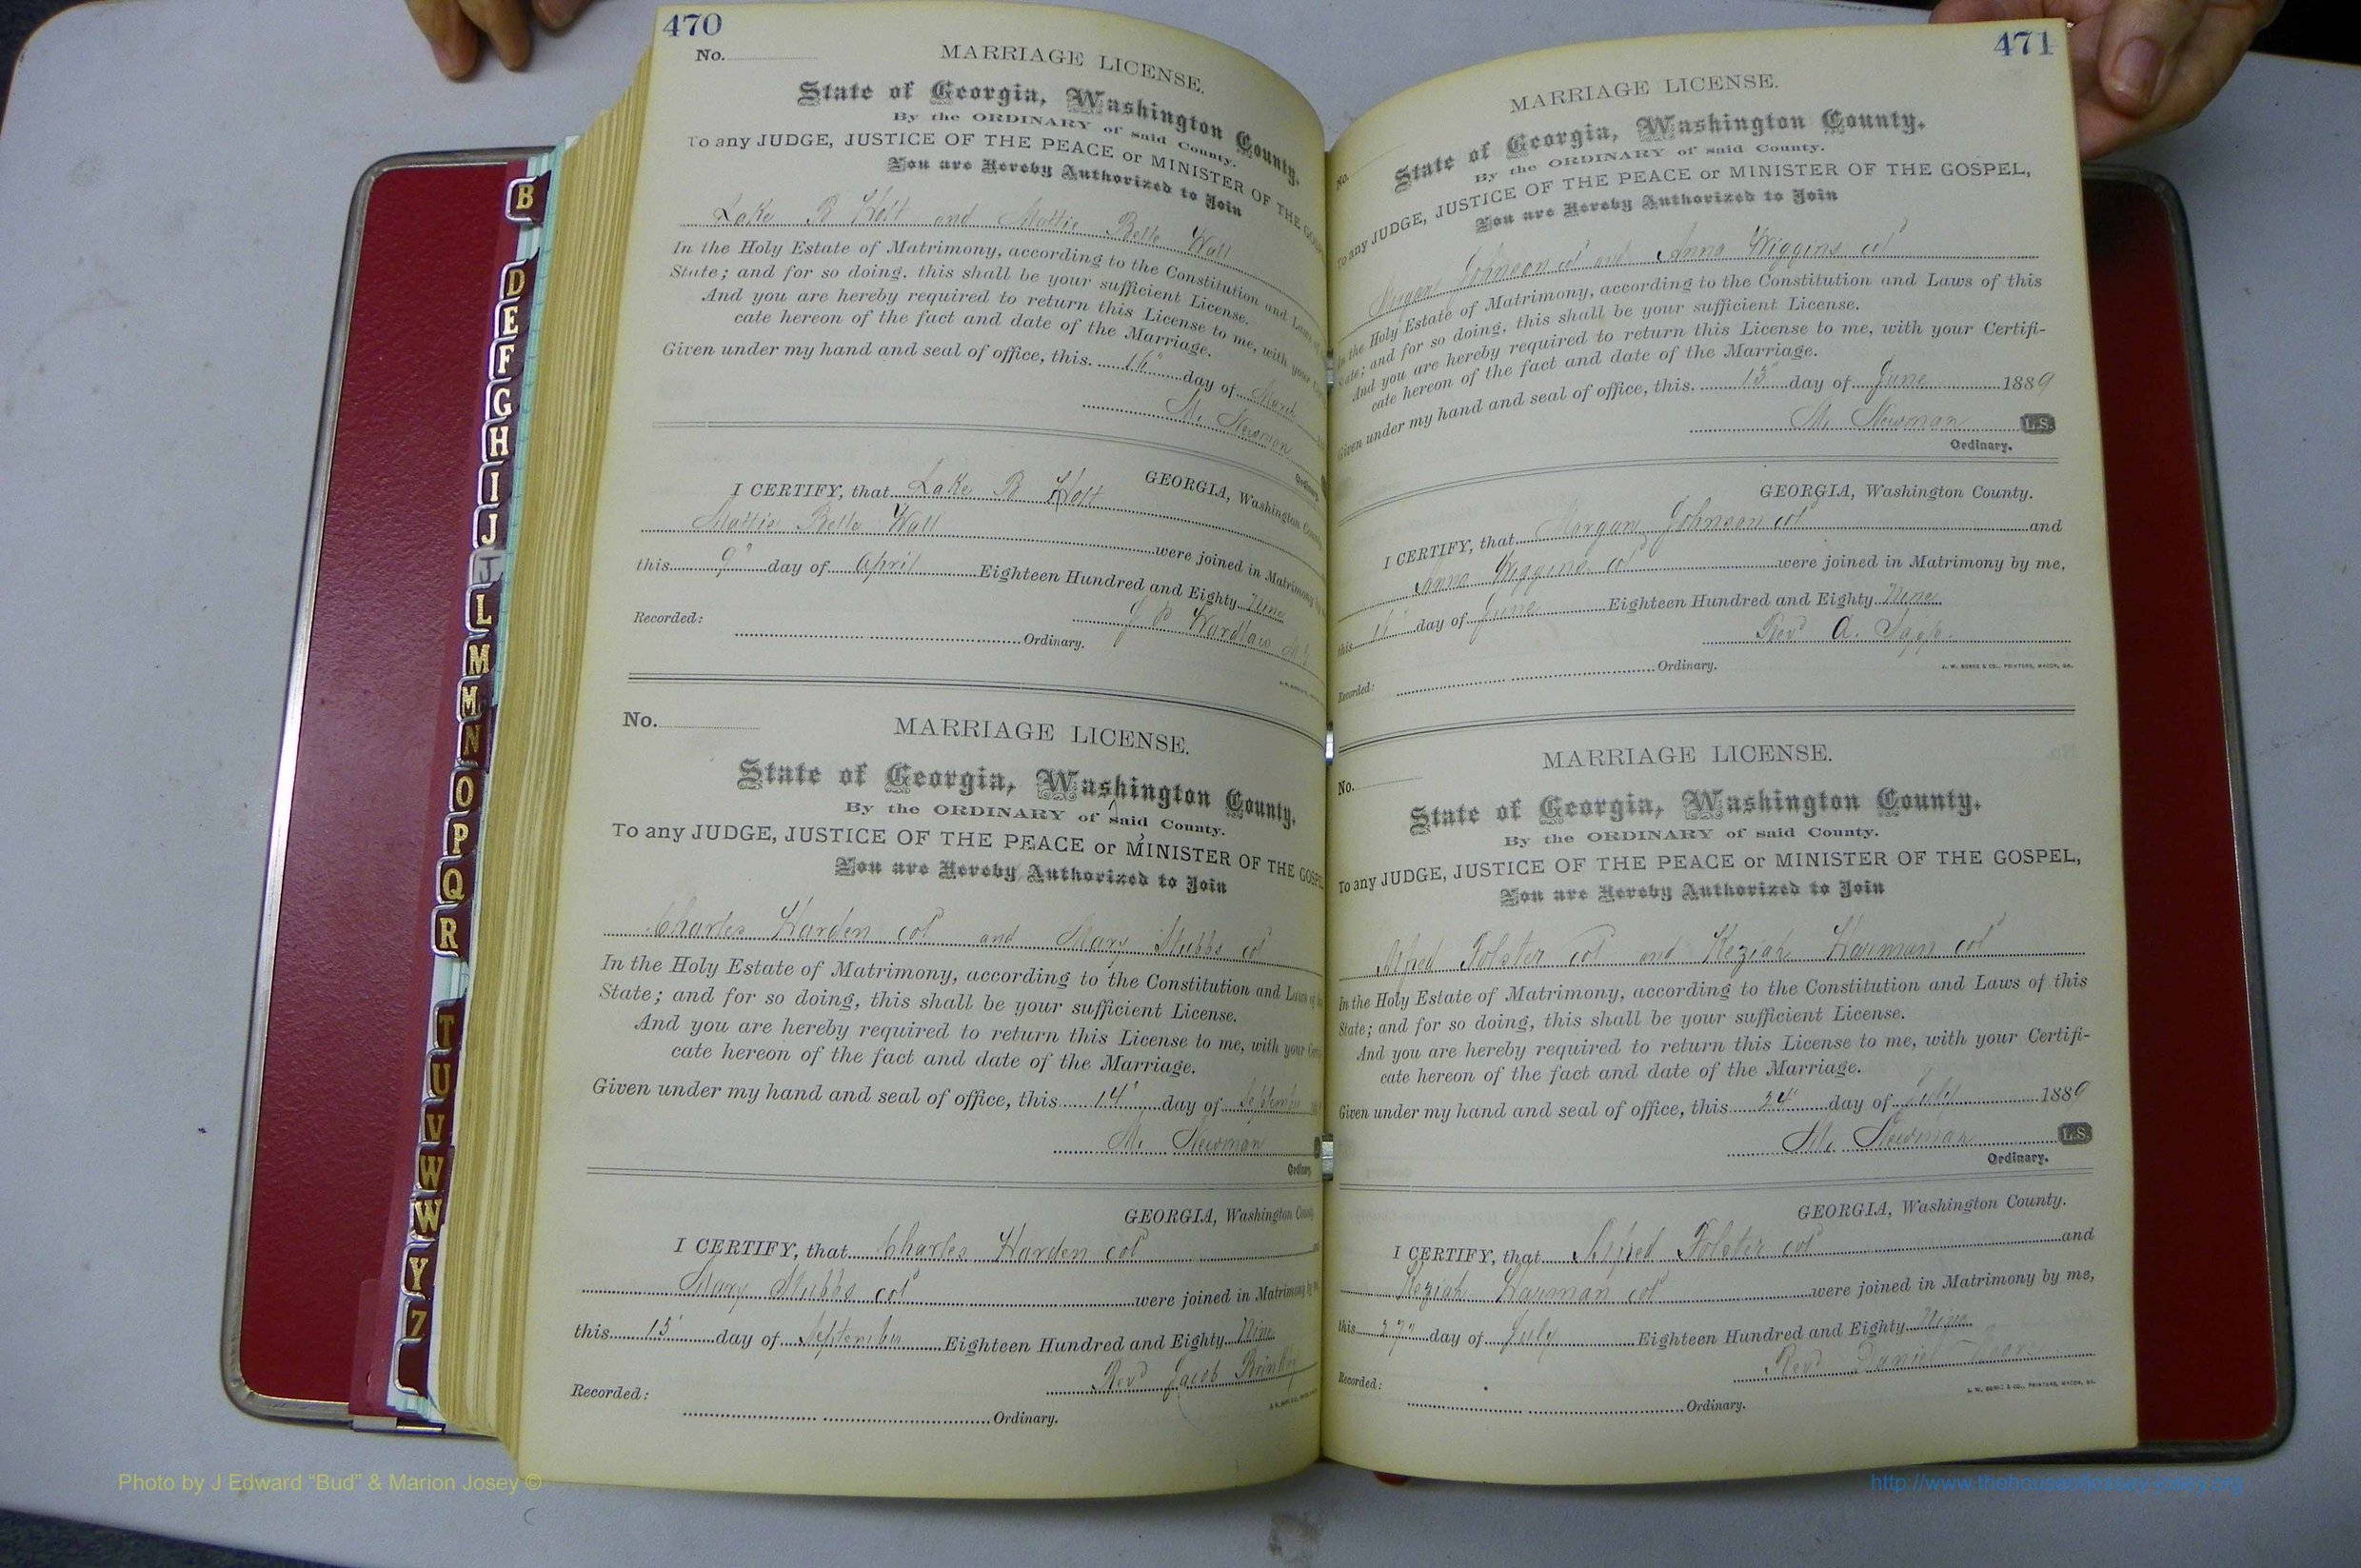 470
No.
MARRIAGE LICENSE.
State of Georgia, Washington County.
By the ORDINARY of said County.
To any JUDGE, JUSTICE OF THE PEACE or MINISTER OF THE GOSP
You are Hereby Authorized to Join
Lake B Holt and Mattie Belle Wall
In the Holy Estate of Matrimony, according to the Constitution and Laws of
State; and for so doing, this shall be your sufficient License.
And you are hereby required to return this License to me, with your
cate hereon of the fact and date of the Marriage.
Given under my hand and seal of office, this 16" day of March
M. Newman
Ordinary.
GEORGIA, Washington County
I CERTIFY, that Lake B Holt
Mattie Belle Wall were joined in Matrimony by
this 9" day of April Eighteen Hundred and Eighty Nine
J B Wardlaw
Recorded: Ordinary.
No.
MARRIAGE LICENSE.
State of Georgia, Washington County.
By the ORDINARY of said County.
To any JUDGE, JUSTICE OF THE PEACE or MINISTER OF THE GOSPE
You are Hereby Authorized to Join
Charles Harden col and Mary Stubbs col
In the Holy Estate of Matrimony, according to the Constitution and Laws of
State; and for so doing, this shall be your sufficient License.
And you are hereby required to return this License to me, with your
cate hereon of the fact and date of the Marriage.
Given under my hand and seal of office, this 14" day of September
M. Newman
Ordinary
GEORGIA, Washington County
I CERTIFY, that Charles Harden col
Mary Stubbs col were joined in Matrimony by
this 15" day of September Eighteen Hundred and Eighty Nine
Revd Jacob
Recorded: Ordinary.
471
No.
MARRIAGE LICENSE.
State of Georgia, Washington County.
By the ORDINARY of said County.
To any JUDGE, JUSTICE OF THE PEACE or MINISTER OF THE GOSPEL,
You are Hereby Authorized to Join
Morgan Johnson col and Anna Wiggins col
In the Holy Estate of Matrimony, according to the Constitution and Laws of this
State; and for so doing, this shall be your sufficient License.
And you are hereby required to return this License to me, with your Certifi-
cate hereon of the fact and date of the Marriage.
Given under my hand and seal of office, this day of June 1889
M. Newman L.S.
Ordinary.
GEORGIA, Washington County.
I CERTIFY, that Morgan Johnson col and
Anna Wiggins col were joined in Matrimony by me,
this 16" day of June Eighteen Hundred and Eighty Nine
Revd A. Sapp.
J. W. BURKE & CO., PRINTERS, MACON, GA.
Recorded: Ordinary.
No.
MARRIAGE LICENSE.
State of Georgia, Washington County.
By the ORDINARY of said County.
To any JUDGE, JUSTICE OF THE PEACE or MINISTER OF THE GOSPEL,
You are Hereby Authorized to Join
Alfred Folster col and Keziah Hawman col
In the Holy Estate of Matrimony, according to the Constitution and Laws of this
State; and for so doing, this shall be your sufficient License.
And you are hereby required to return this License to me, with your Certifi-
cate hereon of the fact and date of the Marriage.
Given under my hand and seal of office, this 24" day of July 1889
M. Newman L.S.
Ordinary.
GEORGIA, Washington County.
I CERTIFY, that Alfred Folster col and
Keziah Hawman col were joined in Matrimony by me,
this 27" day of July Eighteen Hundred and Eighty Nine
Revd Daniel
J. W. BURKE & CO., PRINTERS, MACON, GA.
Recorded: Ordinary.
B
D
E
F
G
H
I
J
L
M
M
N
O
P
Q
R
T
U
V
W
W
Y
Z
Photo by J Edward "Bud" & Marion Josey ©